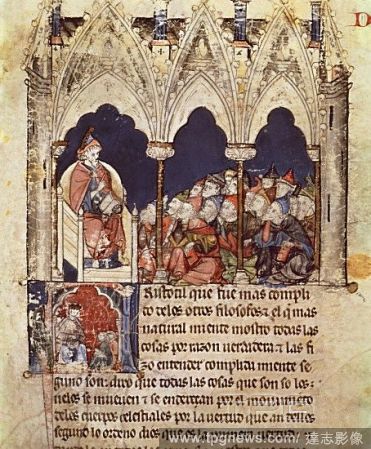 D
Aristotil que fue mas compli
do delos otros filosofos: & el q mas
natural miente mostro todas las
cosas por razon verdadera: & las fi
zo entender complida miente se
gund son: dixo que todas las cosas que son so los
cielos se mueuen & se enderecan por el mouimiento
delos cuerpos celestiales por la uertud que an dellos
segund lo ordeno dios que es la primera uertud
www.tpgnews.com/ 達志影像